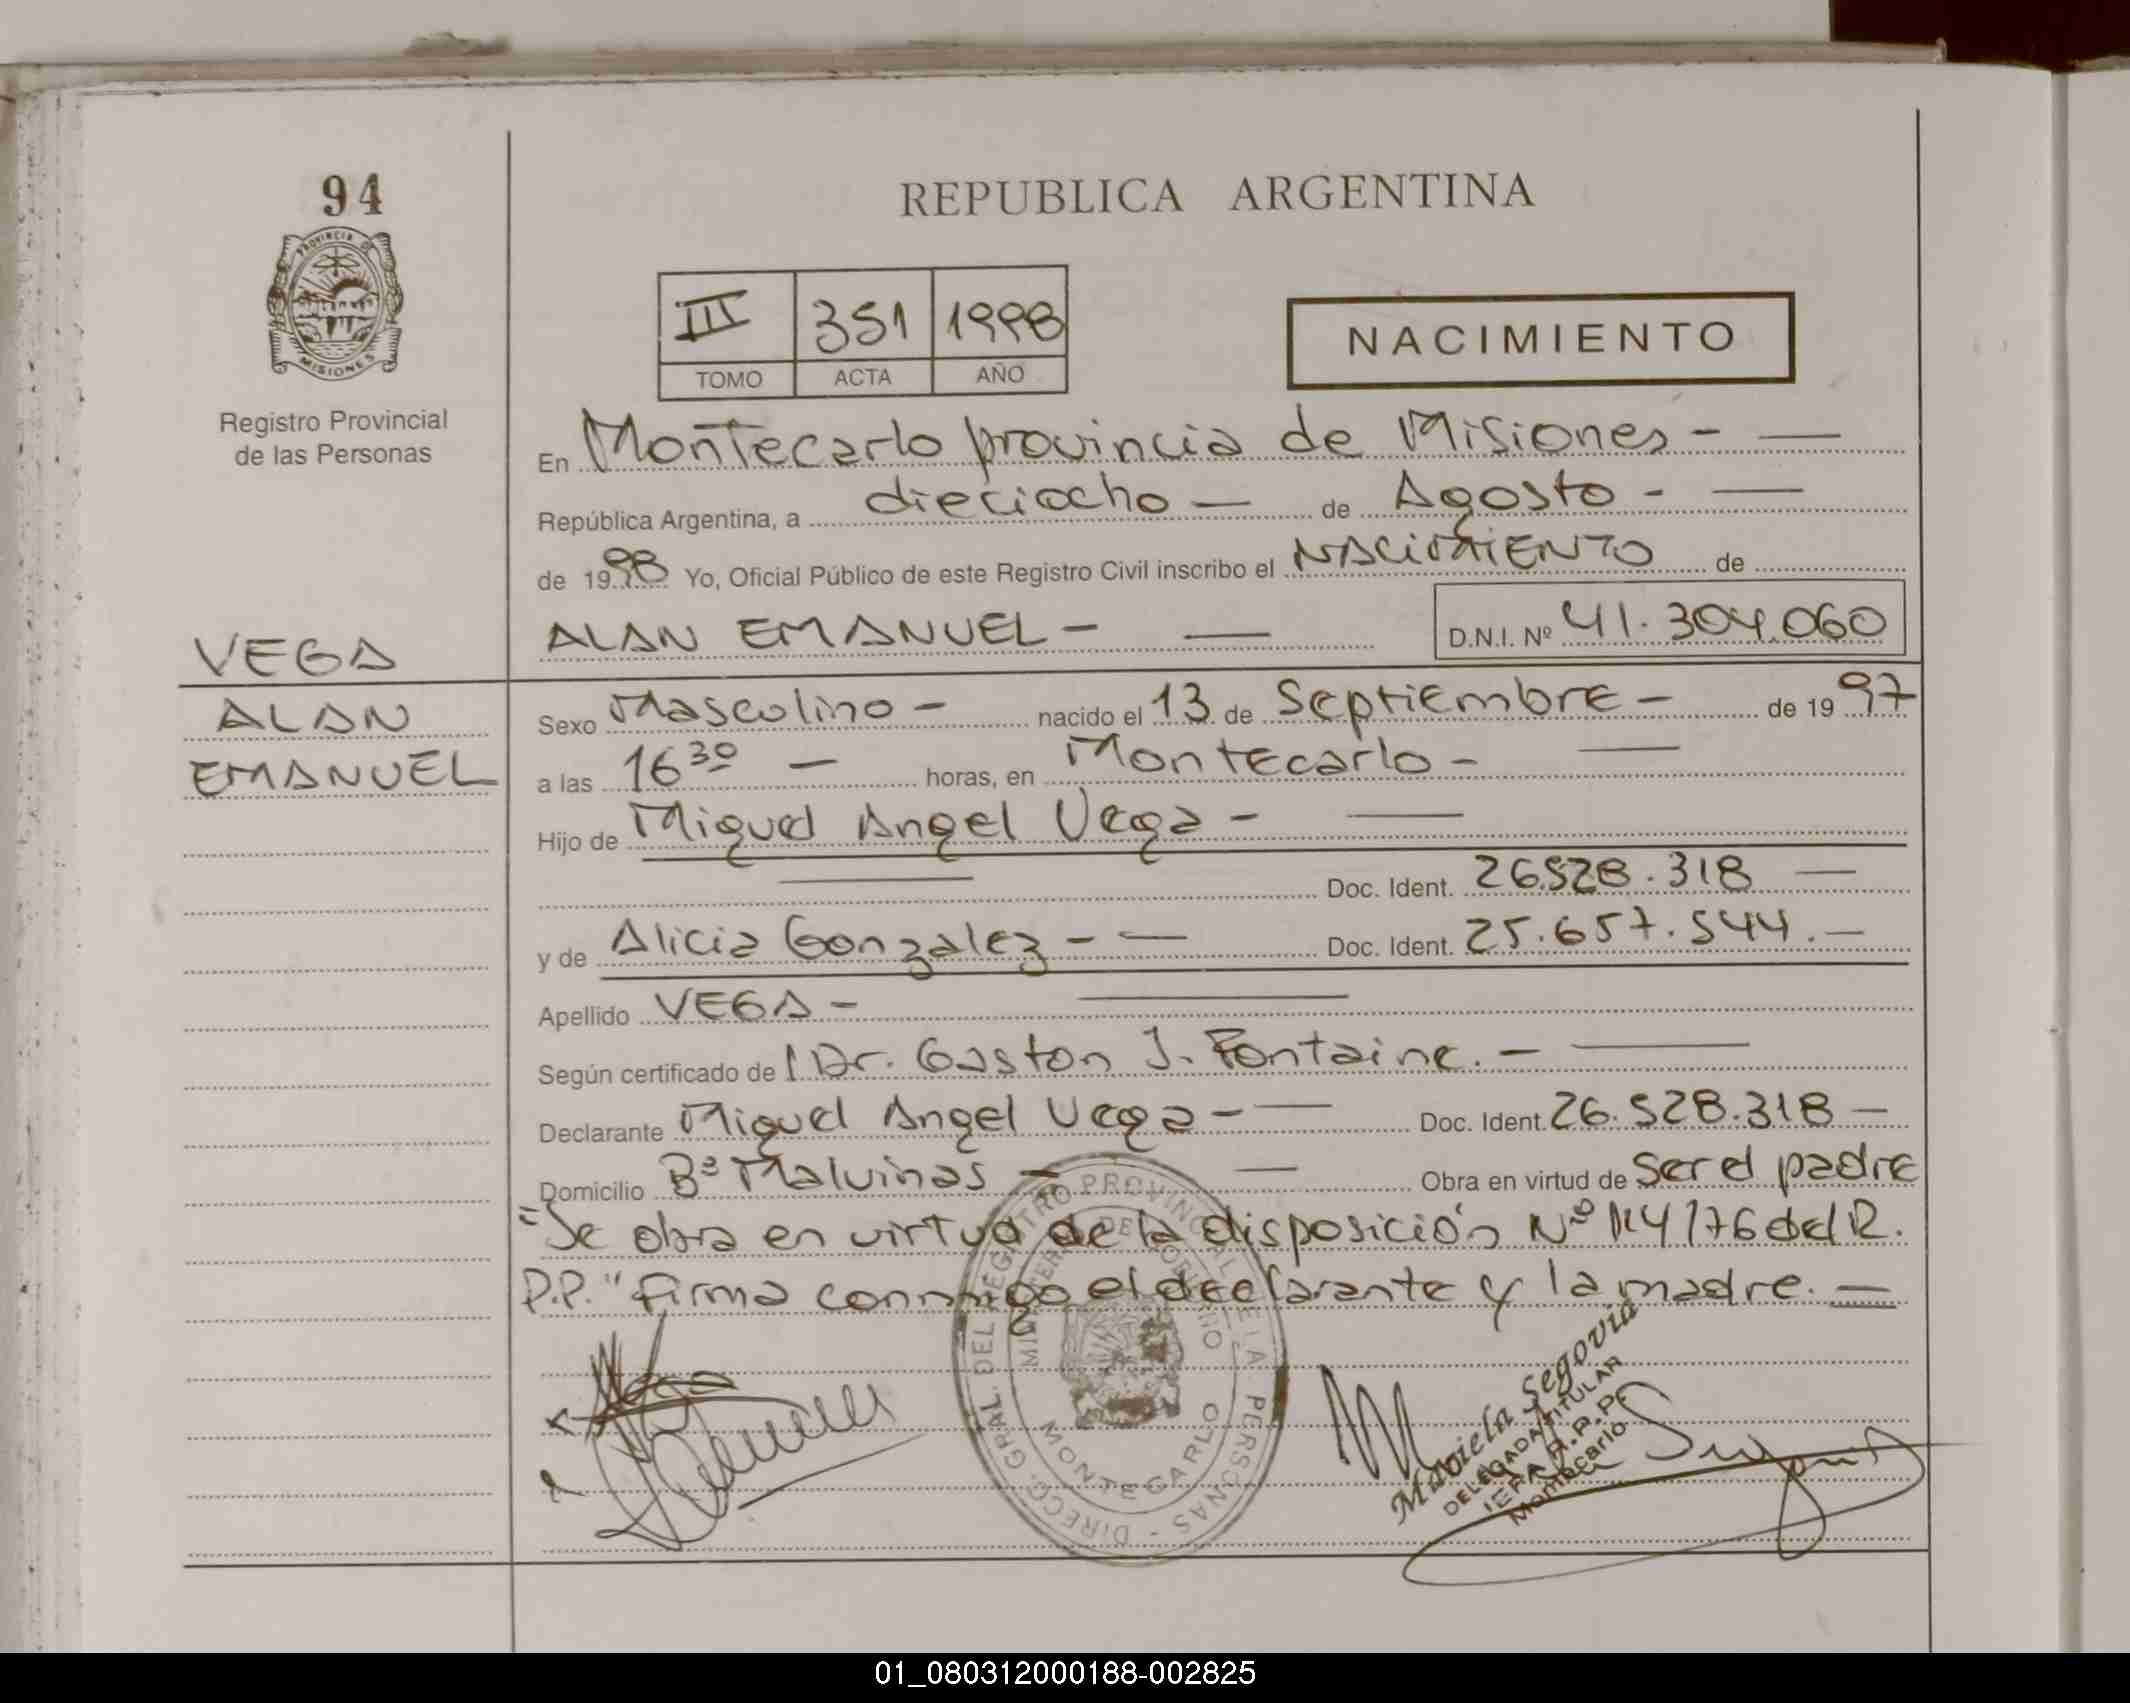 94
REPUBLICA ARGENTINA
PROVINCIA DE
MISIONES
III 351 1998
TOMO ACTA AÑO
NACIMIENTO
Registro Provincial
de las Personas
En Montecarlo provincia de Misiones -
República Argentina, a dieciocho - de Agosto -
de 1998 Yo, Oficial Público de este Registro Civil inscribo el NACIMIENTO de
VEGA
ALAN EMANUEL - D.N.I. Nº 41.304.060
ALAN
EMANUEL
Sexo Masculino - nacido el 13 de Septiembre - de 1997
a las 16 30 - horas, en Montecarlo -
Hijo de Miguel Angel Vega -
Doc. Ident. 26.528.318 -
y de Alicia Gonzalez - - Doc. Ident. 25.657.544. -
Apellido VEGA -
Según certificado de l Dr. Gaston J. Fontaine. -
Declarante Miguel Angel Vega - Doc. Ident. 26.528.318 -
Domicilio Bº Malvinas - Obra en virtud de ser el padre
"Se obra en virtud de la disposición Nº 114/76 del R.
P.P." firma conmigo el declarante y la madre. -
DIRECC. GRAL DEL REGISTRO PROVINCIAL DE LA PERSONAS -
MINISTERIO DE GOBIERNO
MONTECARLO
Vega
Mariela Segovia
DELEGADA TITULAR
R.P.P.
Montecarlo